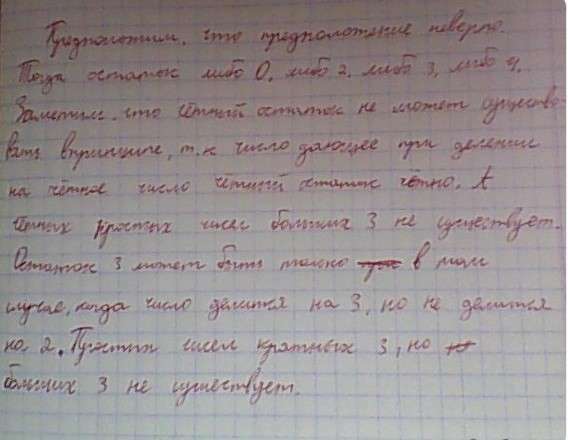 Предположим, что предположение неверно.
Тогда остаток либо 0, либо 2, либо 3, либо 4.
Заметим, что чётный остаток не может существо-
вать впринципе, т.к число дающее при делении
на чётное число чётный остаток чётно. А
чётных простых чисел больших 3 не существует.
Остаток 3 может быть только в том
случае, когда число делится на 3, но не делится
на 2. Простых чисел кратных 3, но
больших 3 не существует.